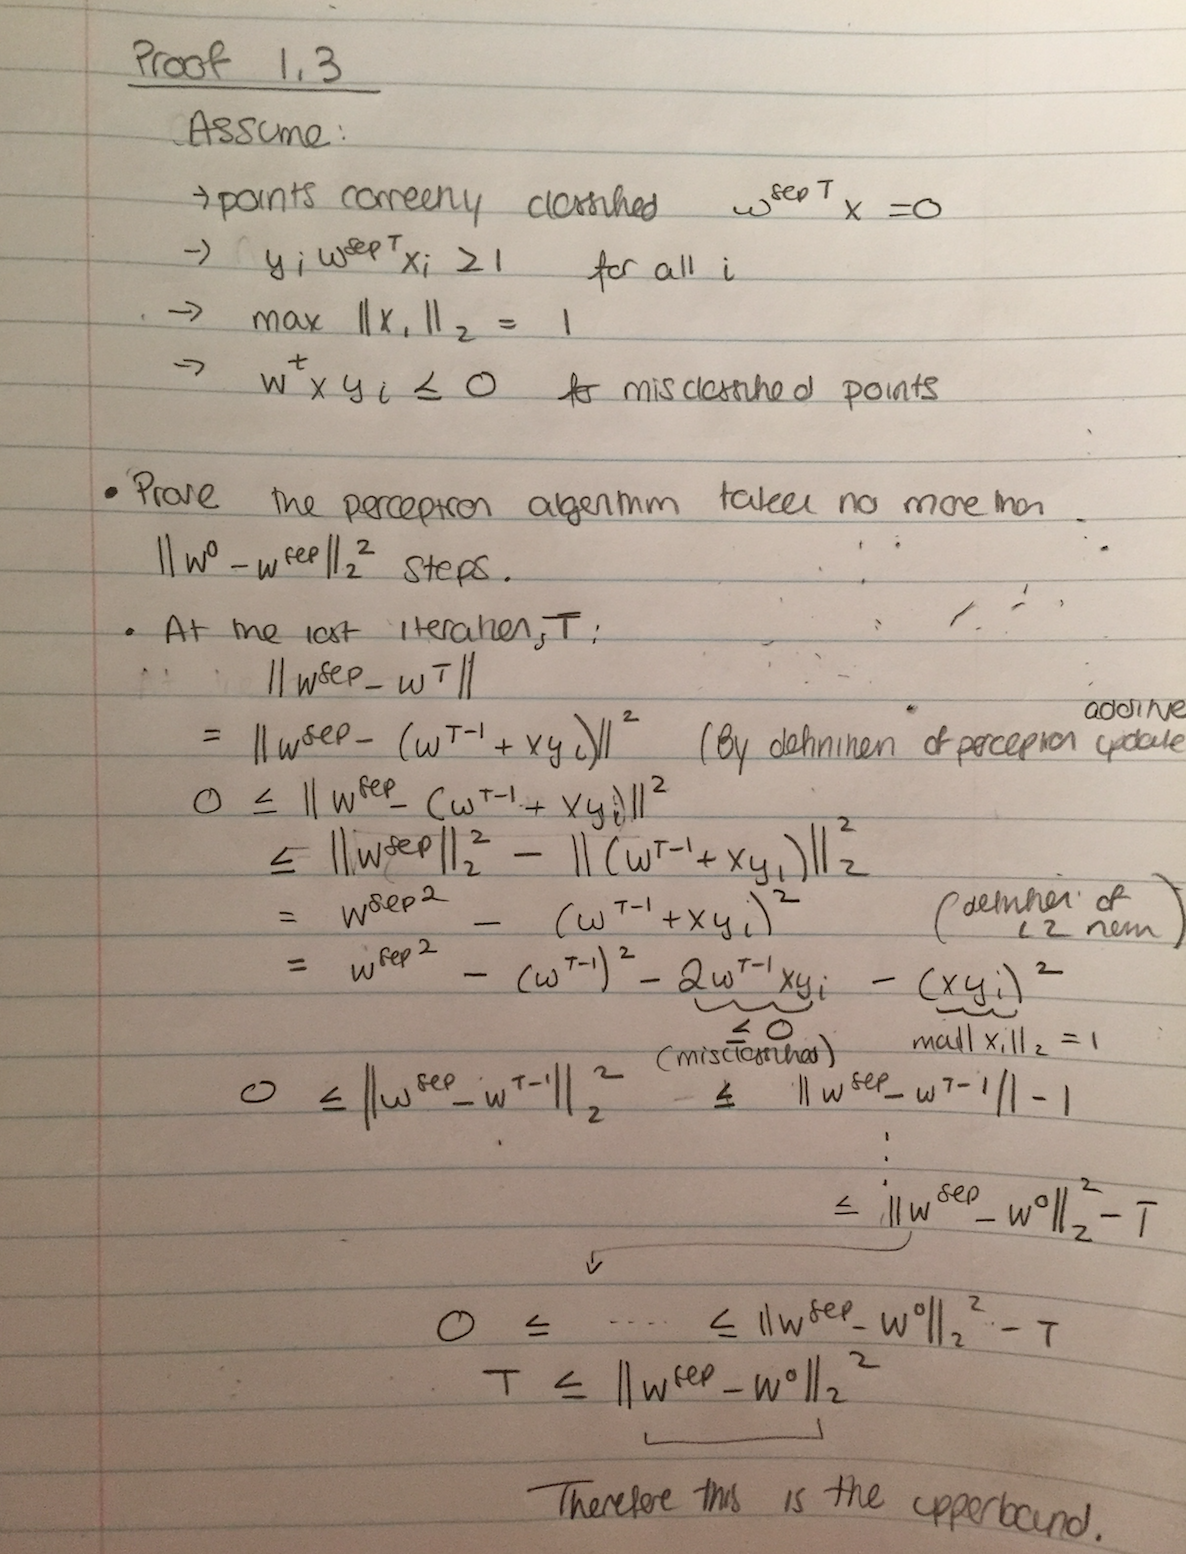 Proof 1.3
Assume:
→ points correctly classified w^{sep T} x = 0
→ y_i w^{sep T} x_i ≥ 1 for all i
→ max ||x_i||_2 = 1
→ w^t x y_i ≤ 0 for misclassified points
• Prove the perceptron algorithm takes no more than
||w^0 - w^{sep}||_2^2 steps.
• At the last iteration, T:
||w^{sep} - w^T||
= ||w^{sep} - (w^{T-1} + x y_i)||^2 (By definition of perceptron additive update
0 ≤ ||w^{sep} - (w^{T-1} + x y_i)||^2
≤ ||w^{sep}||_2^2 - ||(w^{T-1} + x y_i)||_2^2
= w^{sep 2} - (w^{T-1} + x y_i)^2 (definition of L2 norm)
= w^{sep 2} - (w^{T-1})^2 - 2w^{T-1} x y_i - (x y_i)^2
≤ 0 (misclassified) max||x_i||_2 = 1
0 ≤ ||w^{sep} - w^{T-1}||_2^2 ≤ ||w^{sep} - w^{T-1}|| - 1
⋮
≤ ||w^{sep} - w^0||_2^2 - T
0 ≤ .... ≤ ||w^{sep} - w^0||_2^2 - T
T ≤ ||w^{sep} - w^0||_2^2
Therefore this is the upperbound.